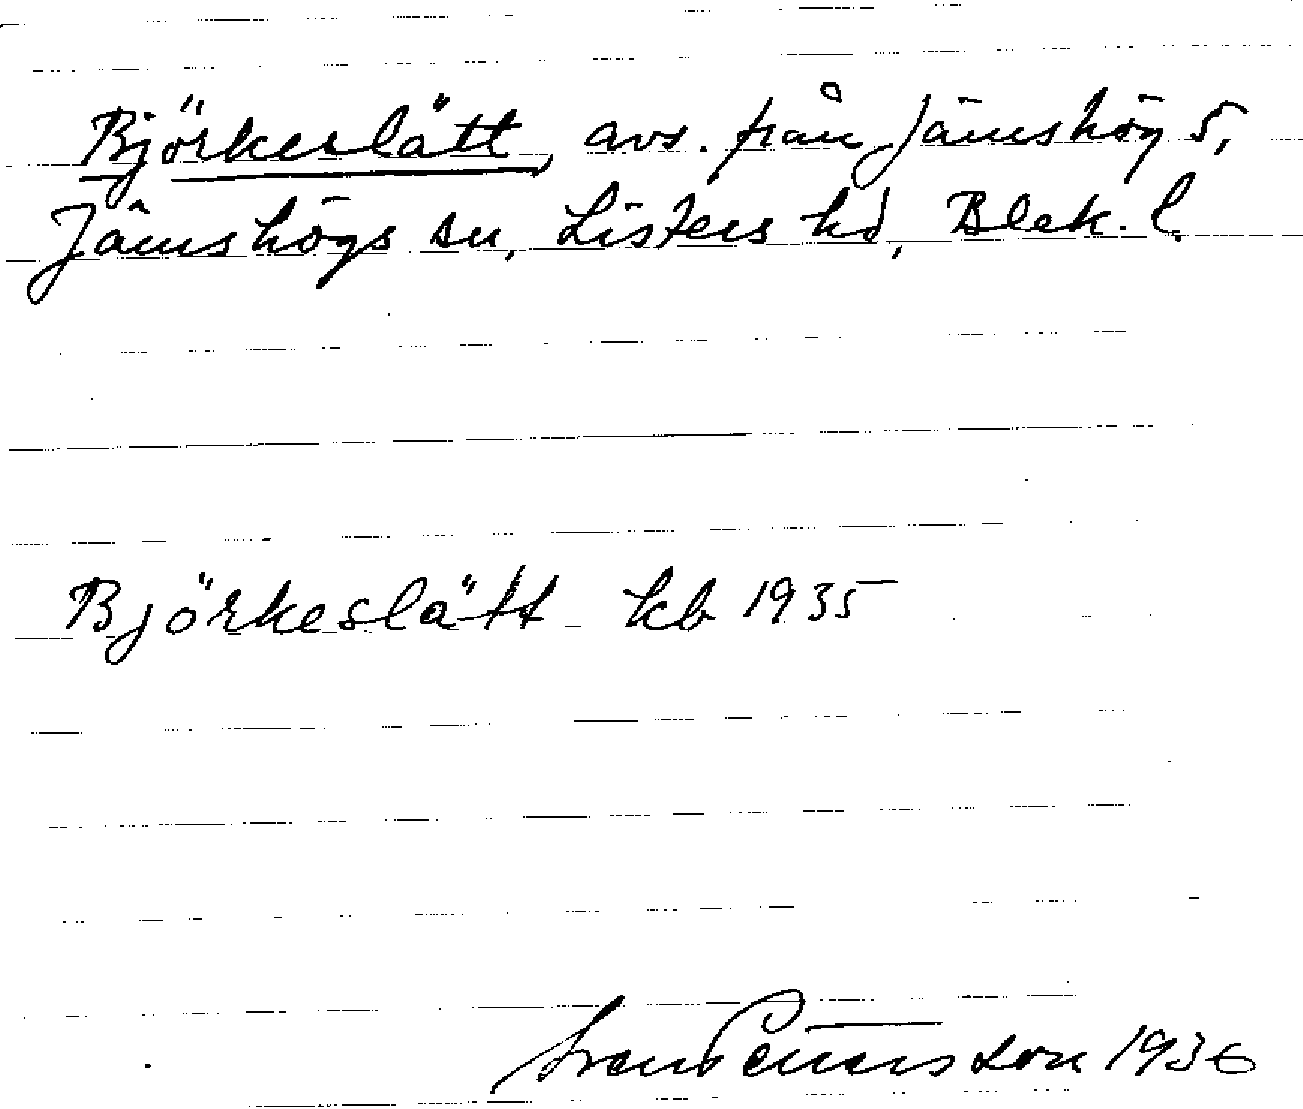 Björkeslätt, avs. från Jämshög 5,
Jämshögs sn, Listers hd, Blek. l.
Björkeslätt kb 1935
Sven Pettersson 1936